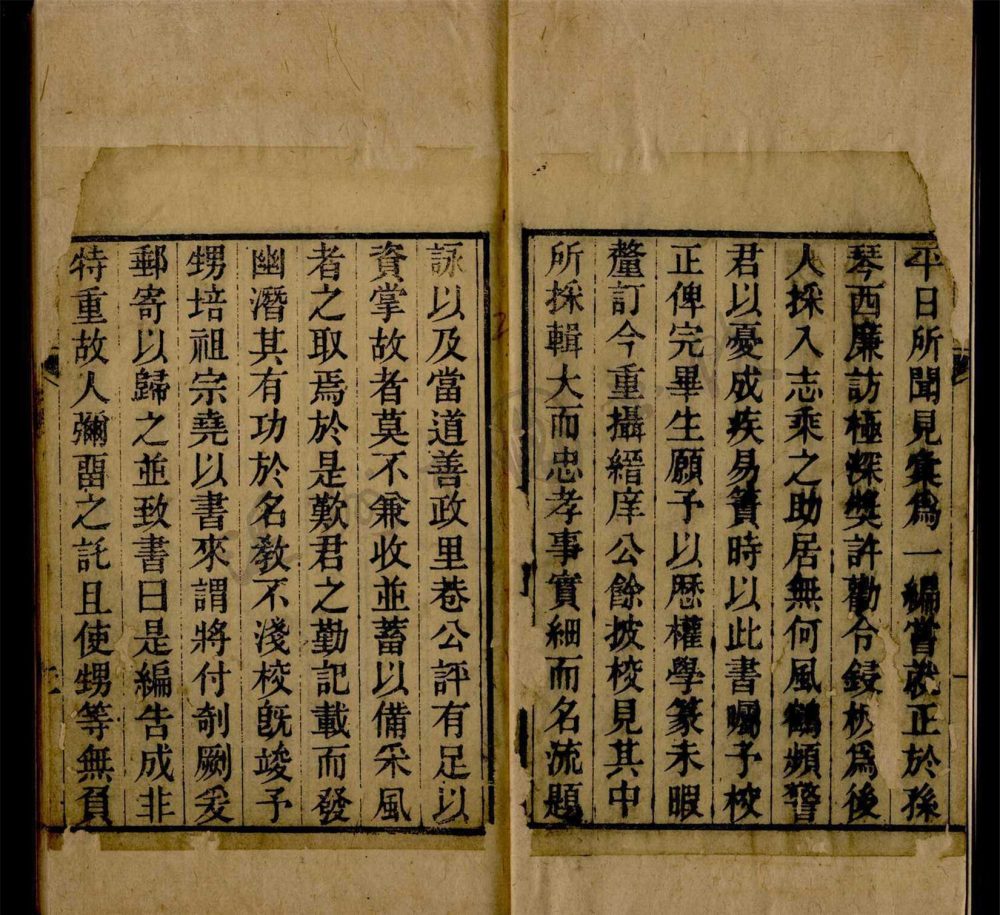 平日所聞見彙爲一編嘗就正於孫
琴西廉訪極深奬許勸令鋟板爲後
人採入志乘之助居無何風鶴頻警
君以憂成疾易簀時以此書囑予校
正俾完畢生願予以歷權學篆未暇
釐訂今重攝縉庠公餘披校見其中
所採輯大而忠孝事實細而名流題
詠以及當道善政里巷公評有足以
資掌故者莫不兼收並蓄以備采風
者之取焉於是歎君之勤記載而發
幽潛其有功於名敎不淺校旣竣予
甥培祖宗堯以書來謂將付剞劂爰
郵寄以歸之並致書曰是編告成非
特重故人彌畱之託且使甥等無負